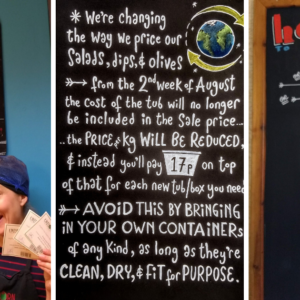 * We're changing
the way we price our
Salads, dips, & olives
from the 2nd week of August
the cost of the tub will no longer
be included in the Sale price...
..the PRICE/kg WILL BE REDUCED,
& instead you'll pay 17p on top
of that for each new tub/box you need
AVOID THIS BY BRINGING
IN YOUR OWN CONTAINERS
of any kind, as long as they're
CLEAN, DRY, & fit for PURPOSE.
TO